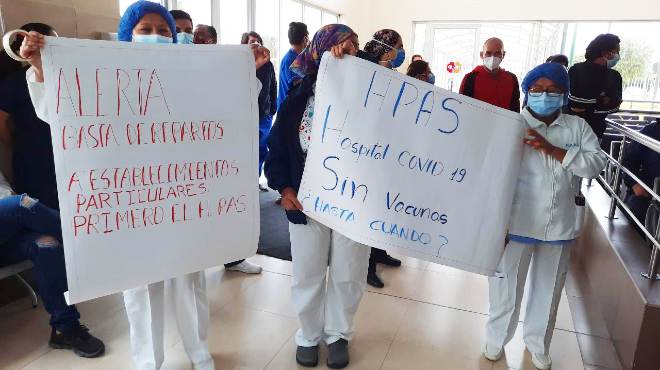 ALERTA
BASTA DE REPARTOS
A ESTABLECIMIENTOS
PARTICULARES
PRIMERO EL H. PAS
HPAS
Hospital COVID 19
Sin Vacunas
¿HASTA CUANDO?